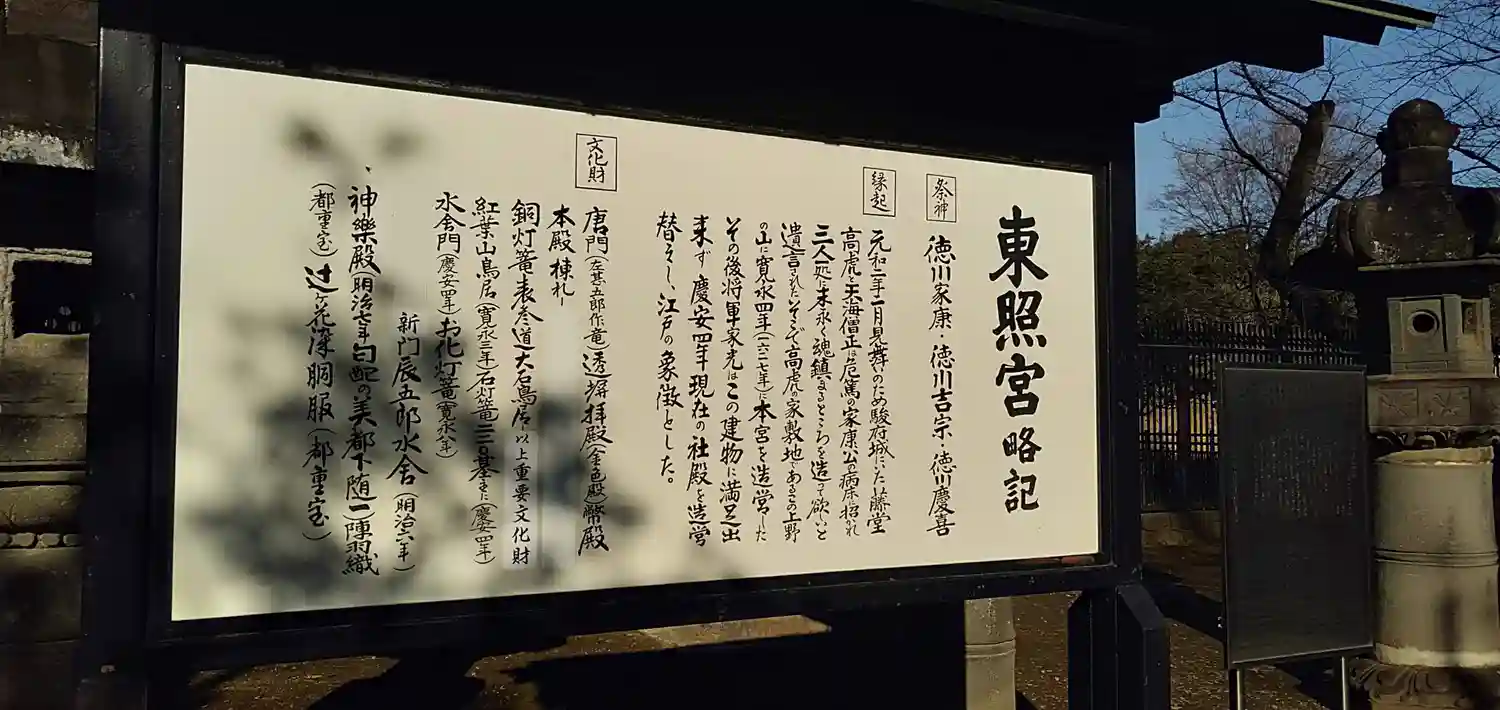 東照宮略記
祭神
徳川家康・徳川吉宗・徳川慶喜
縁起
元和二年二月見舞いのため駿府城にいた藤堂
高虎と天海僧正は危篤の家康公の病床に招かれ
三人一処に末永く魂鎮まるところを造って欲しいと
遺言された。そこで高虎の家敷地であるこの上野
の山に寛永四年(一六二七年)に本宮を造営した
その後将軍家光はこの建物に満足出
来ず慶安四年現在の社殿を造営
替えし、江戸の象徴とした。
文化財
唐門(左甚五郎作竜)透塀拝殿(金色殿)幣殿
本殿棟札
銅灯篭表参道大石鳥居(以上重要文化財
紅葉山鳥居(寛永三年)石灯篭二三〇基(慶安四年)
水舎門(慶安四年)お化灯篭(寛永八年)
新門辰五郎水舎(明治六年)
神樂殿(明治七年勾配の美都下随一)陣羽織
(都重宝)辻ヶ花染胴服(都重宝)